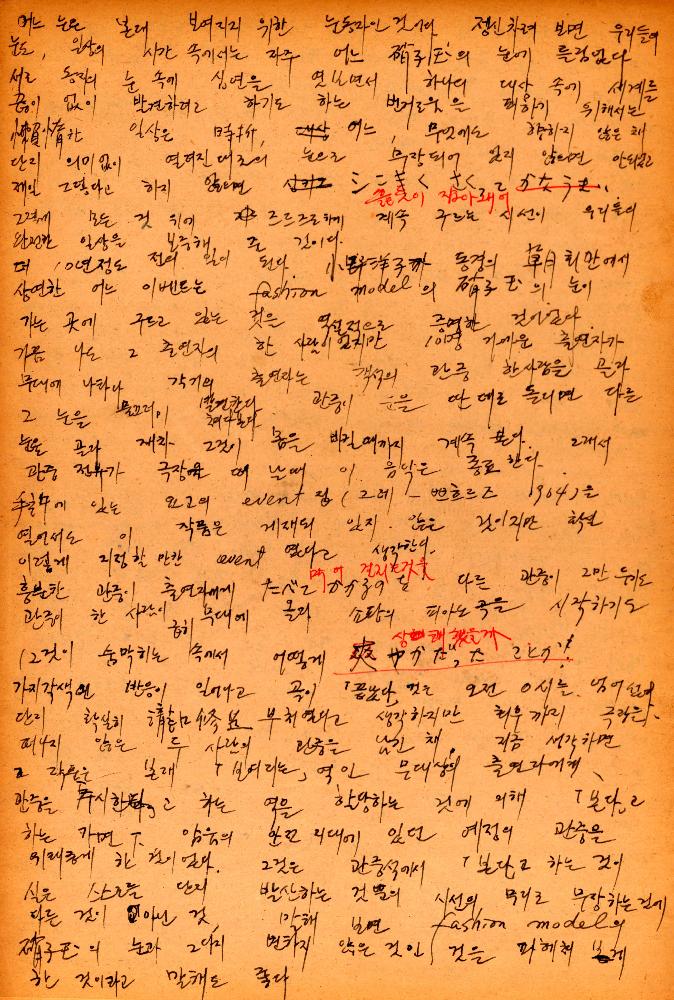 어느 눈은 본래 보여지기 위한 눈동자인 것이다 정신차려 보면 우리들의
눈도, 일상의 시간 속에서는 자주 어느 硝子玉의 눈에 틀림없다
서로 동자의 눈 속에 심연을 엿보면서 하나의 대상 속에 세계를
끝이 없이 발견하려고 하기도 하는 번거로움은 피하기 위해서는
懶惰한 일상은 時折, 어느, 무엇에도 향하지 않은 채
단지 의미없이 열려진 대로의 눈으로 무장되어 있지 않으면 안되었고
제일 그렇다고 하지 않으면
그렇게 모든 것 위에 계속 구르는 시선이 우리들의
완전한 일상을 보호해 준 것이다.
떠 10년정도 전의 일이 된다. 小野洋子가 동경의 草月회관에서
상연한 어느 이벤트는 fashion model의 硝子玉의 눈이
가는 곳에 구르고 있는 것을 역설적으로 증명한 것이었다
가끔 나도 그 출연자의 한 사람이었지만 10명 가까운 출연자가
무대에 나타나 각기의 출연자는 객석의 관중 한사람을 골라
그 눈을 물끄러미 쳐다본다 관중이 눈을 딴 데로 돌리면 다른
눈을 골라 재차 그것이 몸을 바낄때까지 계속 본다. 그래서
관중 전부가 극장을 떠날때 이 음악은 종료한다.
手許에 있는 요코의 event집 (그레ー프흐르즈 1964)을
열어서도 이 작품은 게재되 있지 않은 것이지만 확실
이렇게 지정할 만한 event 였다고 생각한다.
흥분한 관중이 출연자에게 たべてかかるのを 다른 관중이 그만두기도
관중이 한 사람이 급히 무대에 올라 쇼팡의 피아노곡을 시작하기도
(그것이 숨막히는 속에서 어떻게 爽やかだったことか!
가지각색의 반응이 있었다고 곡이 「끝났다」 것은 오전 0시를 넘어 있었다
단지 확실히 請負 부쳐졌다고 생각하지만 최후까지 극장을
떠나지 않은 두 사람의 관중을 남긴 채, 지금 생각하면
그 작품은 본래 「보여지는」 역인 무대상의 출연자에게
관중을 주시한다고 하는 역을 할당하는 것에 의해 「본다」고
하는 가면下, 암음의 안전지대에 있던 예정의 관중을
위태롭게 한 것이었다. 그것은 관중석에서 「본다」고 하는 것이
실은 스스로를 단지 발산하는 것뿐의 시선의 무리로 무장하는것에
다름 것이 아닌 것, 말해 보면 fashion model의
硝子玉의 눈과 그다지 변하지 않은 것인 것을 파헤쳐 보게
한 것이라고 말해도 좋다